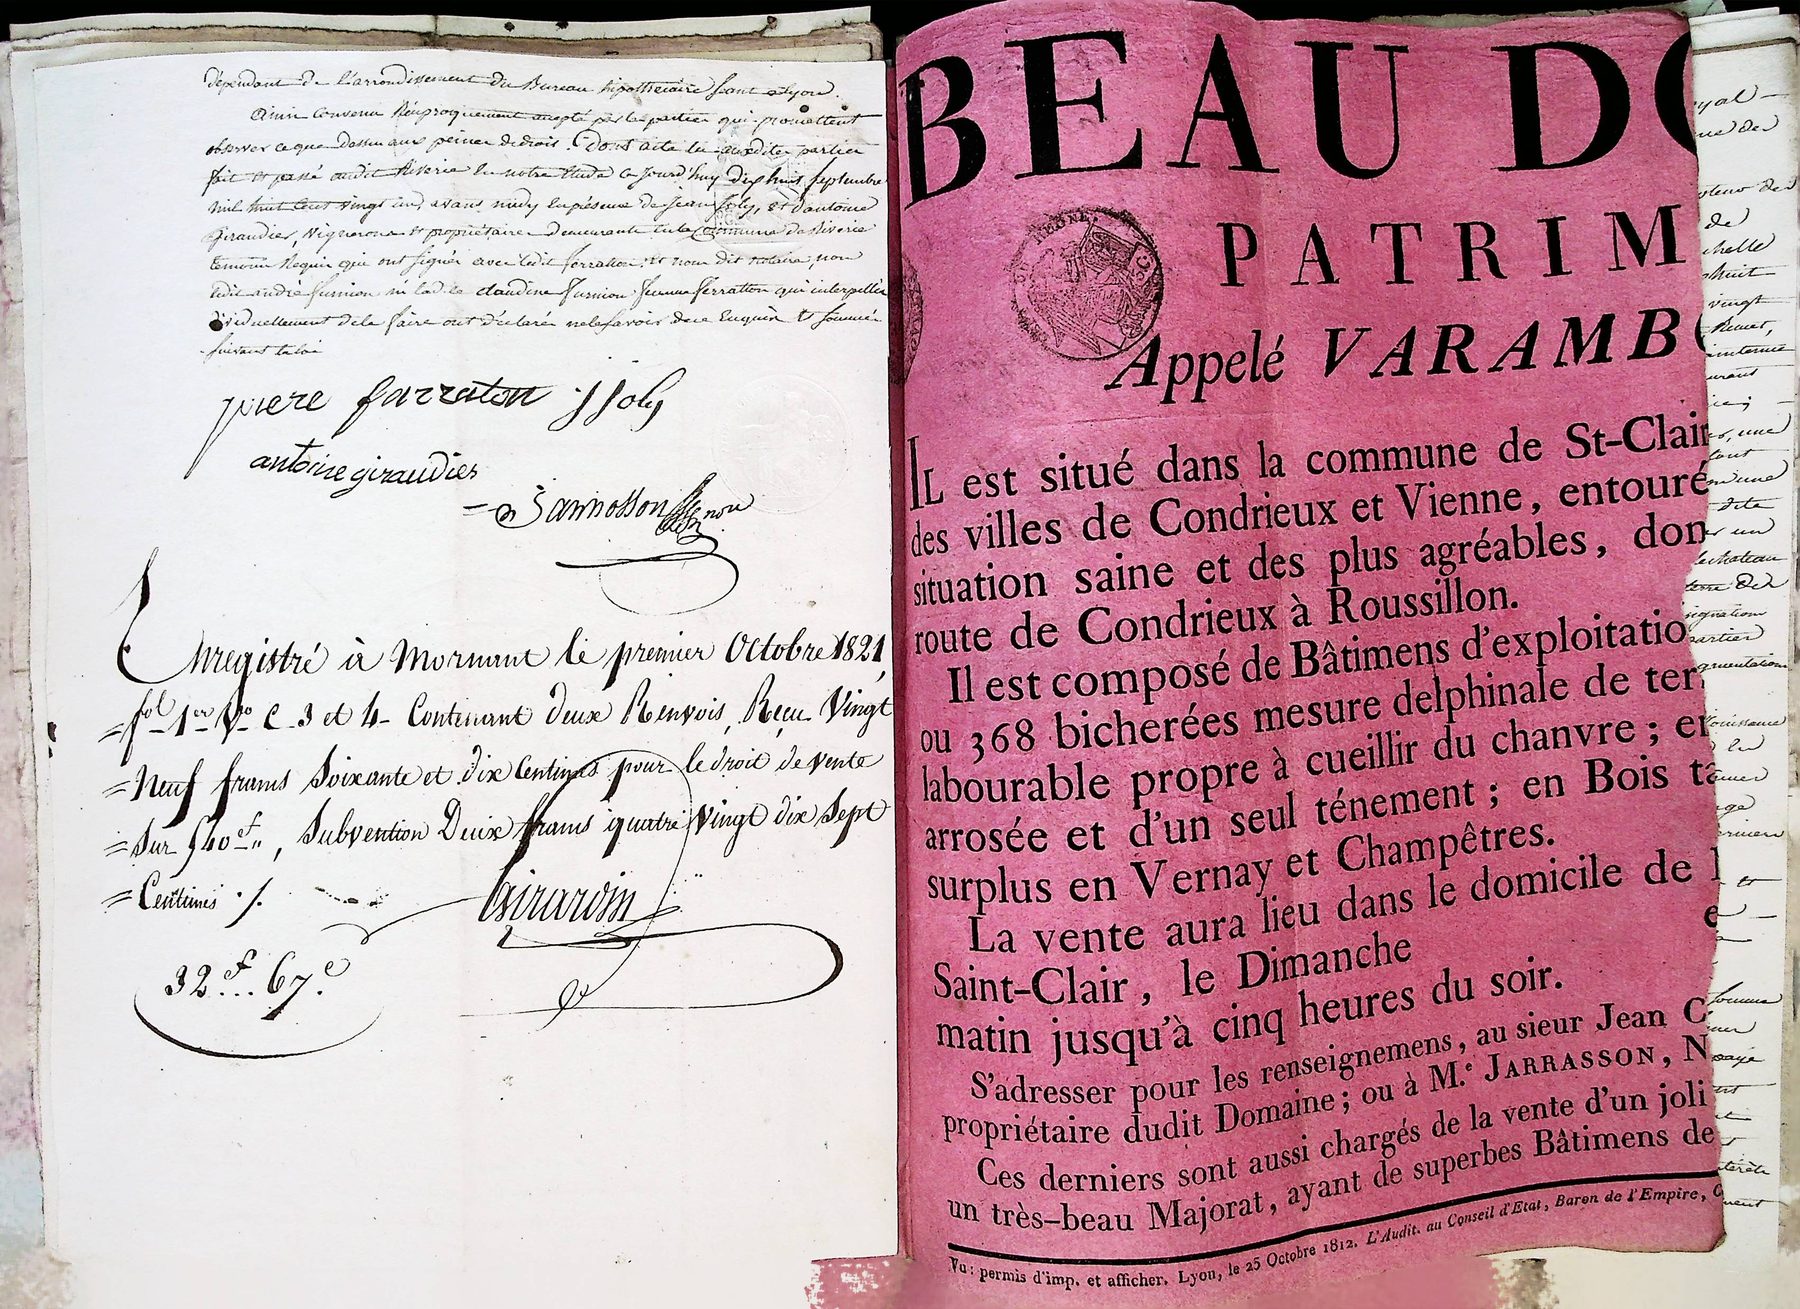 dépendant de l'arrondissement du Bureau hipothécaire séant a Lyon.
Ainsi convenu Réciproquement accepté par les parties qui promettent
observer ce que dessus aux peines de droit. Dont acte lu auxdites parties
fait et passé audit Riverie en notre Etude ce jourd'huy dix huit septembre
mil huit cent vingt un, avant midy En présence de Jean Joly, et d'antoine
Giraudier, vignerons et propriétaires demeurants en la Commune de Riverie
temoins Requis qui ont signés avec ledit ferraton et nous dit notaire, non
ledit andré furnion ni lad.te claudine furnion femme ferratton qui interpellés
individuellement de le faire ont déclaré ne le savoir de ce Enquis et sommés
suivant la loi
piere farraton j Joly
antoine giraudier
Enregistré à Mornant le premier Octobre 1821,
fol 1er Vo C. 3 et 4 Contenant deux Renvois, Reçu Vingt
Neuf francs Soixante et dix Centimes pour le droit de vente
Sur 540 f, Subvention Deux francs quatre Vingt dix Sept
Centimes ./.
Girardin
32 f... 67 c
BEAU DO
PATRIM
Appelé VARAMBO
IL est situé dans la commune de St-Clair
des villes de Condrieux et Vienne, entouré
situation saine et des plus agréables, don
route de Condrieux à Roussillon.
Il est composé de Bâtimens d'exploitatio
ou 368 bicherées mesure delphinale de ter
labourable propre à cueillir du chanvre ; en
arrosée et d'un seul ténement ; en Bois ta
surplus en Vernay et Champêtres.
La vente aura lieu dans le domicile de
Saint-Clair, le Dimanche
matin jusqu'à cinq heures du soir.
S'adresser pour les renseignemens, au sieur Jean C
propriétaire dudit Domaine ; ou à M.e JARRASSON, N
Ces derniers sont aussi chargés de la vente d'un joli
un très-beau Majorat, ayant de superbes Bâtimens de
Vu : permis d'imp. et afficher. Lyon, le 25 Octobre 1812. L'Audit. au Conseil d'Etat, Baron de l'Empire, C